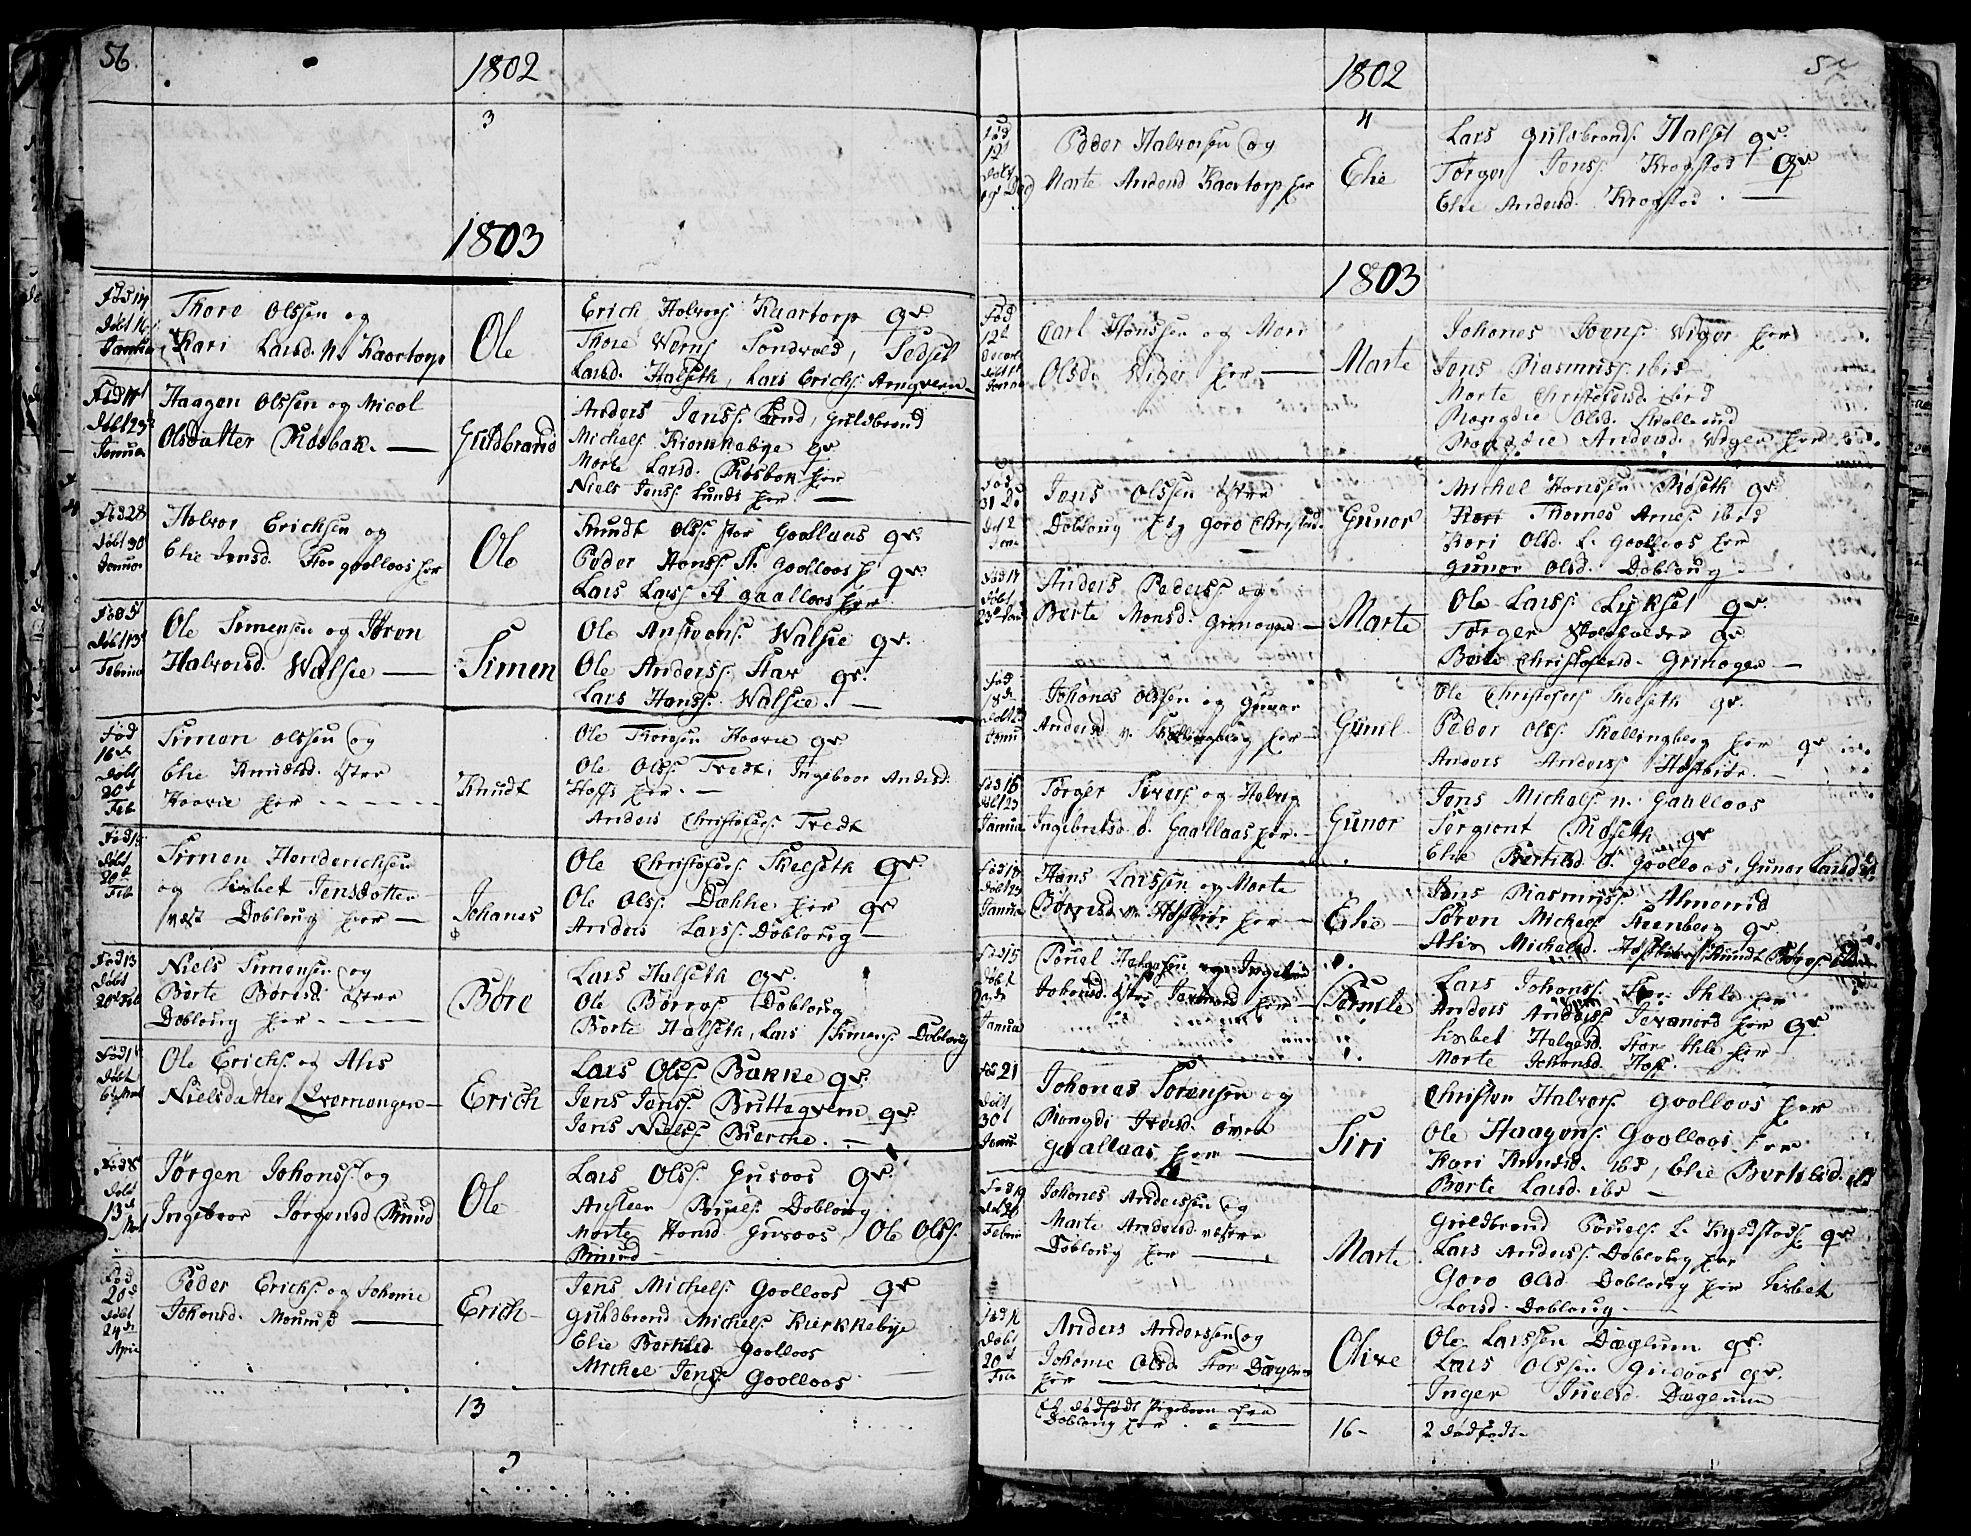 56
1802
3
1803
Fød 14
Døbt 16
Janua
Thore Olssen og
Kari Larsd. N Kaartorp
Ole
Erich Halvors Kaartorp gr.
Thore Werns Sondvold, Sedsel
Larsd. Halseth, Lars Erichs. Arnqvern
Fød 14
Døbt 23
Janua
Haagen Olssen og Nicol
Olsdatter Røsbak.
Guldbrand
Anders Jenss. Lund, Guldbrand
Michels Kierkebye gr
Marte Larsd. Røsbak her
Niels Jenss. Lunds her.
Fød 28
Døbt 30
Janua
Halvor Erichsen og
Elie Jensd. Stor gaallaas her
Ole
Knudt Olss. stor Gaallaas gr.
Peder Hanss. St. Gaallaas gr.
Lars Larss. St gaallaas her
Fød 5
Døbt 13
Februa
Ole Simensen og Jøren
Halvorsd. Walsie
Simen
Ole Anstvens. Walsie gr.
Ole Anderss. Stav gr.
Lars Hanss. Walsie.
Fød
16
Døbt
20
Feb
Simen Olssen og
Elie Knudtsd. øster
Haavie her
Knudt
Ole Thorsen Haavie gr
Ole Olss. Tredt, Ingeboor Andersd.
Hoffs her.
Anders Christofers. Tredt
Fød 15
Døbt
20
Feb
Simen Henderichsen
og Lisbet Jensdotter
væst Dobloug her
Johanes
Ole Christofers. Skelseth gr.
Ole Olss. Dæhlie her gr
Anders Larss. Dobloug
Fød 13
Døbt
20 Feb
Niels Simensen og
Børte Børresd. øster
Dobloug her
Børe
Lars Halseth gr.
Ole Børres Dobloug
Børte Halseth, Lars Simens Dobloug
Fød 1
Døbt
6 Mart
Ole Erichs. og Alis
Nielsdatter Evomangen
Erich
Lars Olss. Bakke gr.
Jens Jenss. Brittegvern gr.
Jens Nielss. Bierche.
Fød 8
Døbt
13
Mart
Jørgen Johanss. og
Ingeboor Jørgensd Ruud
Ole
Lars Olss. Gusoos gr.
Ansteen Poüels. Dobloug
Marte Hansd. Gusoos, Ole Olss.
Ruud
Fød
20
Døbt
24
Apri
Peder Erichs. og Johane
Johansd. Mouruß
Erich
Jens Michels. Goolloos gr
Guldbrand Michels. Kierkkebye
Elie Bertilsd Goolloos
Michel Jens. Goolloos
13
57
1802
4
Fød
12
Peder Halvorsen og
Marte Andersd Kaartorp her
Elie
Lars Guldbrands. Halset gr.
Tørger Jenss. Krogstad gr
Elie Andersd. Krogstad.
1803
Fød
12
Decor
Janua
Carl Hanssen og Mari
Olsd. Wiger her
Marte
Johanes Joens. Wiger her
Jens Rasmuss. ibid
Marte Christofersd. ibid
Rangdie Olsd. Skollerud
Rangdie Andersd. Wiger her
Fød
31 De
Døbt 2
Jan
Jens Olssen østre
Dobloug og Goro Christsd.
Gunor
Michel Hanssen Røseth gr
Kari Thomes Arnes. ibid
Kari Olsd. L. Goolloos her
Gunor Olsd. Dobloug
Fød 17
Døbt
23 Jan
Anders Peders. og
Berte Monsd. Grinagen
Marte
Ole Larss. Lykset gr.
Tørger Skoleholder gr
Berte Christofersd. Grinagen
Fød
18
Døbt 23
Janu
Johanes Olssen og Gunor
Andersd. N. Skellingberg her
Guml
Ole Christofers Skelseth gr.
Peder Olss. Skellingberg her gr
Anders Anderss Høstbiør.
Fød 16
Døbt 23
Janua
Tørger Sivers og Helvig
Ingebretsd. ø. Gaallaas her.
Gunor
Jens Michels. n. Gaallaas
Sergiant Røseth gr
Elie Bertilsd. ø. Goolloos, Gunor Larsd
Fød 18
Døbt 23
Janua
Hans Larssen og Marte
Børresd. v. Høstbiør her
Elie
Jens Rasmuss. Almerud
Søren Michels Steenberg gr.
Alis Michelsd. Høstbiør, Knudt
Fød 15
Døbt
Janua
Poüel Helgesen og Ingeborg
Johansd. øster Jevanord her
Pernele
Lars Johans. Stor Ihle her
Anders Anderss. Jevanord her gr
Lisbet Helgesd. Stor Ihle her
Marte Johansd. Hoff.
Fød 21
Døbt
30
Janu
Johanes Sørensen og
Rangdi Iversd. øvre
gaallaas her
Siri
Christen Halvors. Goolloos her
Ole Haagens. Goolloos her
Kari Knudsd. ibd, Elie Bertilsd. ibd
Børte Larsd. ibd
Fød 19
Februa
Johanes Anderssen og
Marte Andersd. vestre
Dobloug her
Marte
Guldbrand Poüels. L. Kyldstads gr
Lars Anders. Dobloug her
Goro Olsd Dobloug her Lisbet
Larsd. Dobloug.
Fød 16
Døbt
20
Feb
Anders Anderssen og
Johane Olsd. Stor Dæglum
her
Olive
Ole Larssen Dæglum gr.
Lars Olssen Gusoos gr.
Inger Juelsd. Dæglum
Et dødfødt Pigebarn fra
Dobloug her.
16
2 dødfødt.